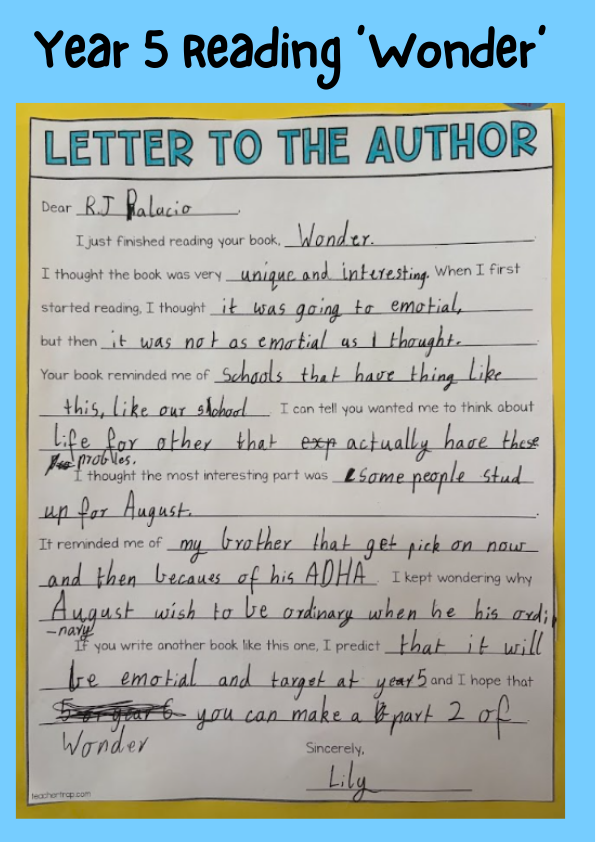 Year 5 Reading 'Wonder'
LETTER TO THE AUTHOR
Dear R.J Palacio.
I just finished reading your book, Wonder.
I thought the book was very unique and interesting. When I first
started reading, I thought it was going to emotial,
but then it was not as emotial as I thought.
Your book reminded me of Schools that have thing like
this, like our school. I can tell you wanted me to think about
life for other that actually have these
problles.
I thought the most interesting part was some people stud
up for August.
It reminded me of my brother that get pick on now
and then becaues of his ADHA. I kept wondering why
August wish to be ordinary when he his ordi
-nary
If you write another book like this one, I predict that it will
be emotial and target at year 5 and I hope that
you can make a part 2 of
Wonder
Sincerely,
Lily
teachertrap.com